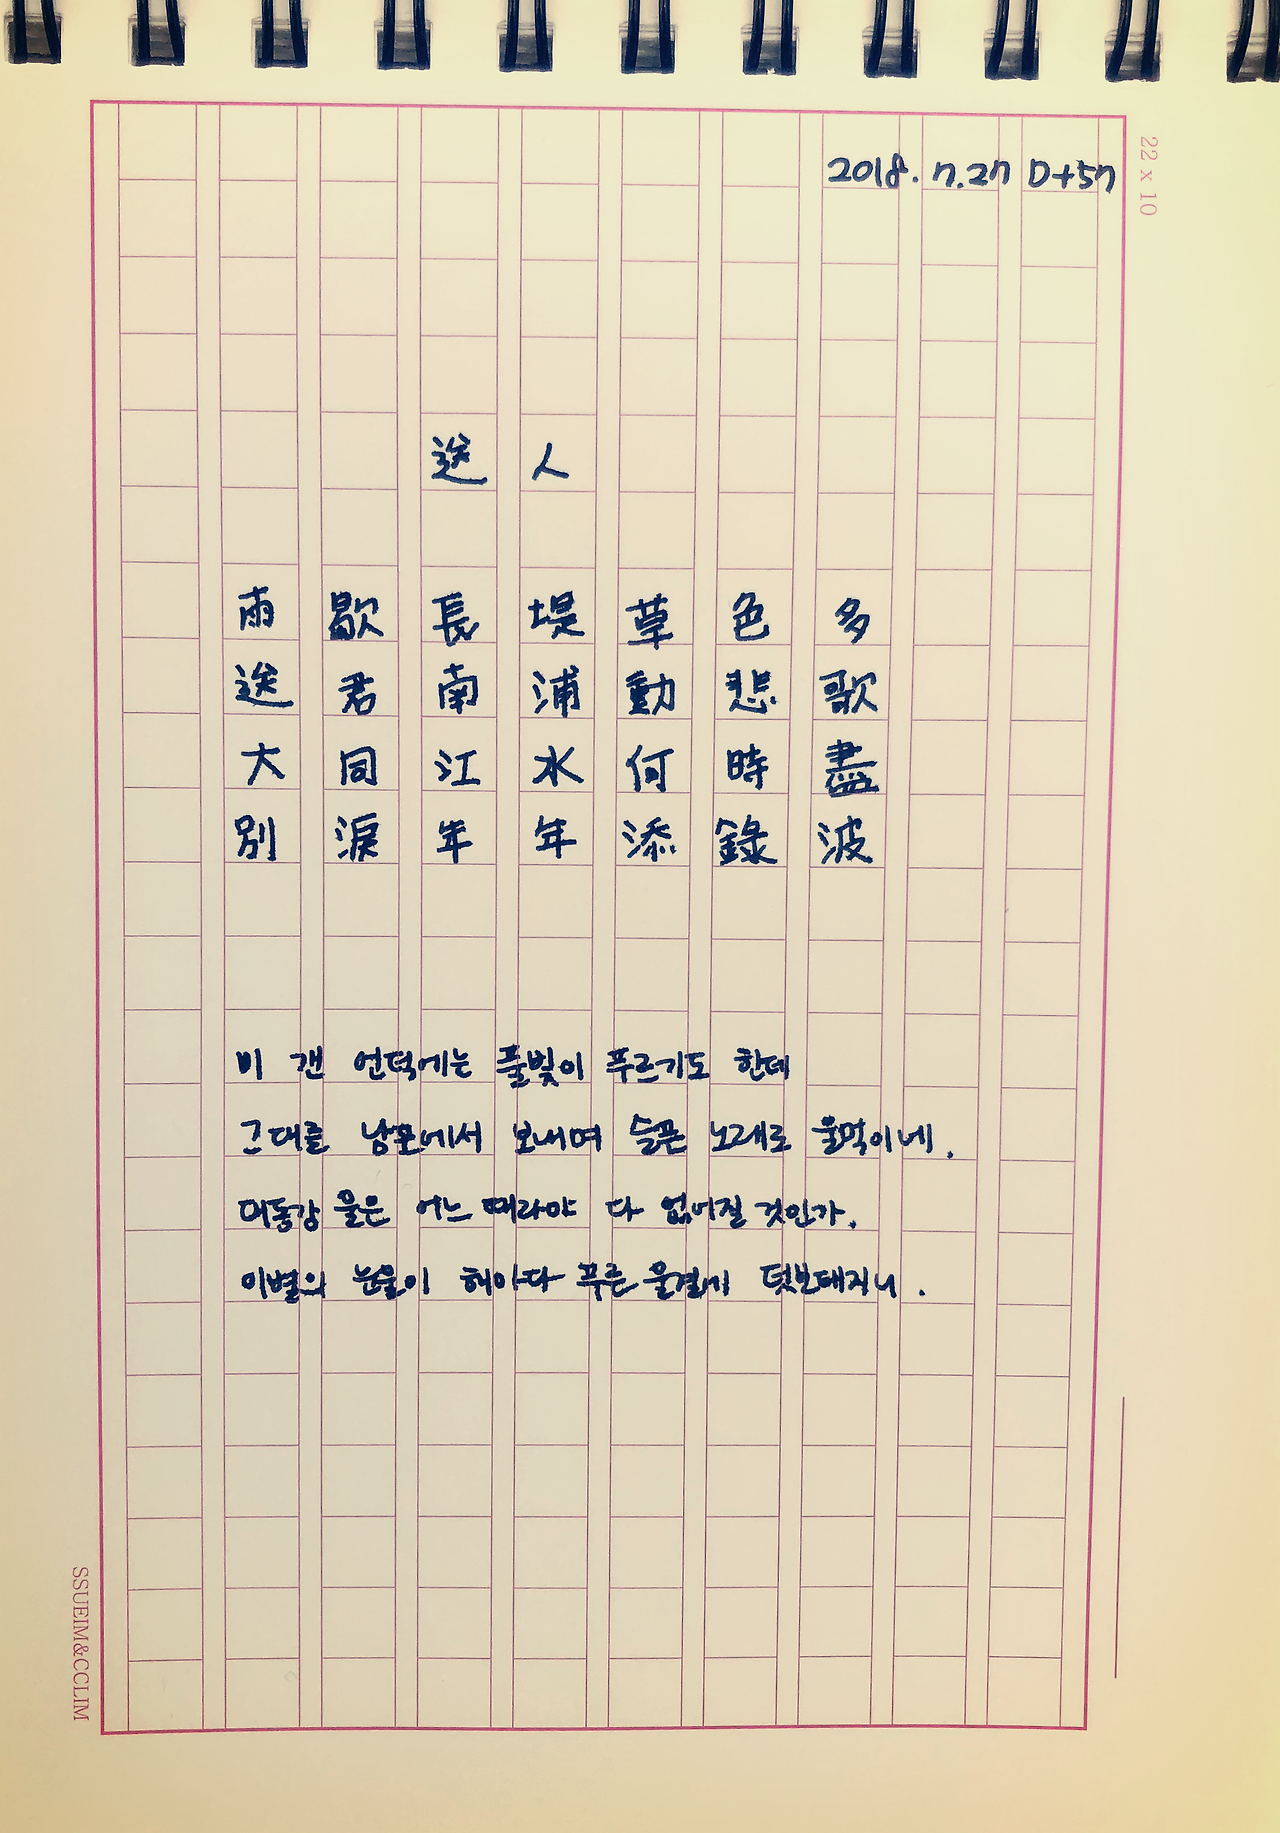 2018. 7. 27 D+57
22 x 10
送人
雨歇長堤草色多
送君南浦動悲歌
大同江水何時盡
別淚年年添錄波
비 갠 언덕에는 풀빛이 푸르기도 한데
그대를 남포에서 보내며 슬픈 노래로 울먹이네.
대동강 물은 어느 때라야 다 없어질 것인가.
이별의 눈물이 해마다 푸른 물결에 덧보태지니.
SSUEIM&CCLIM